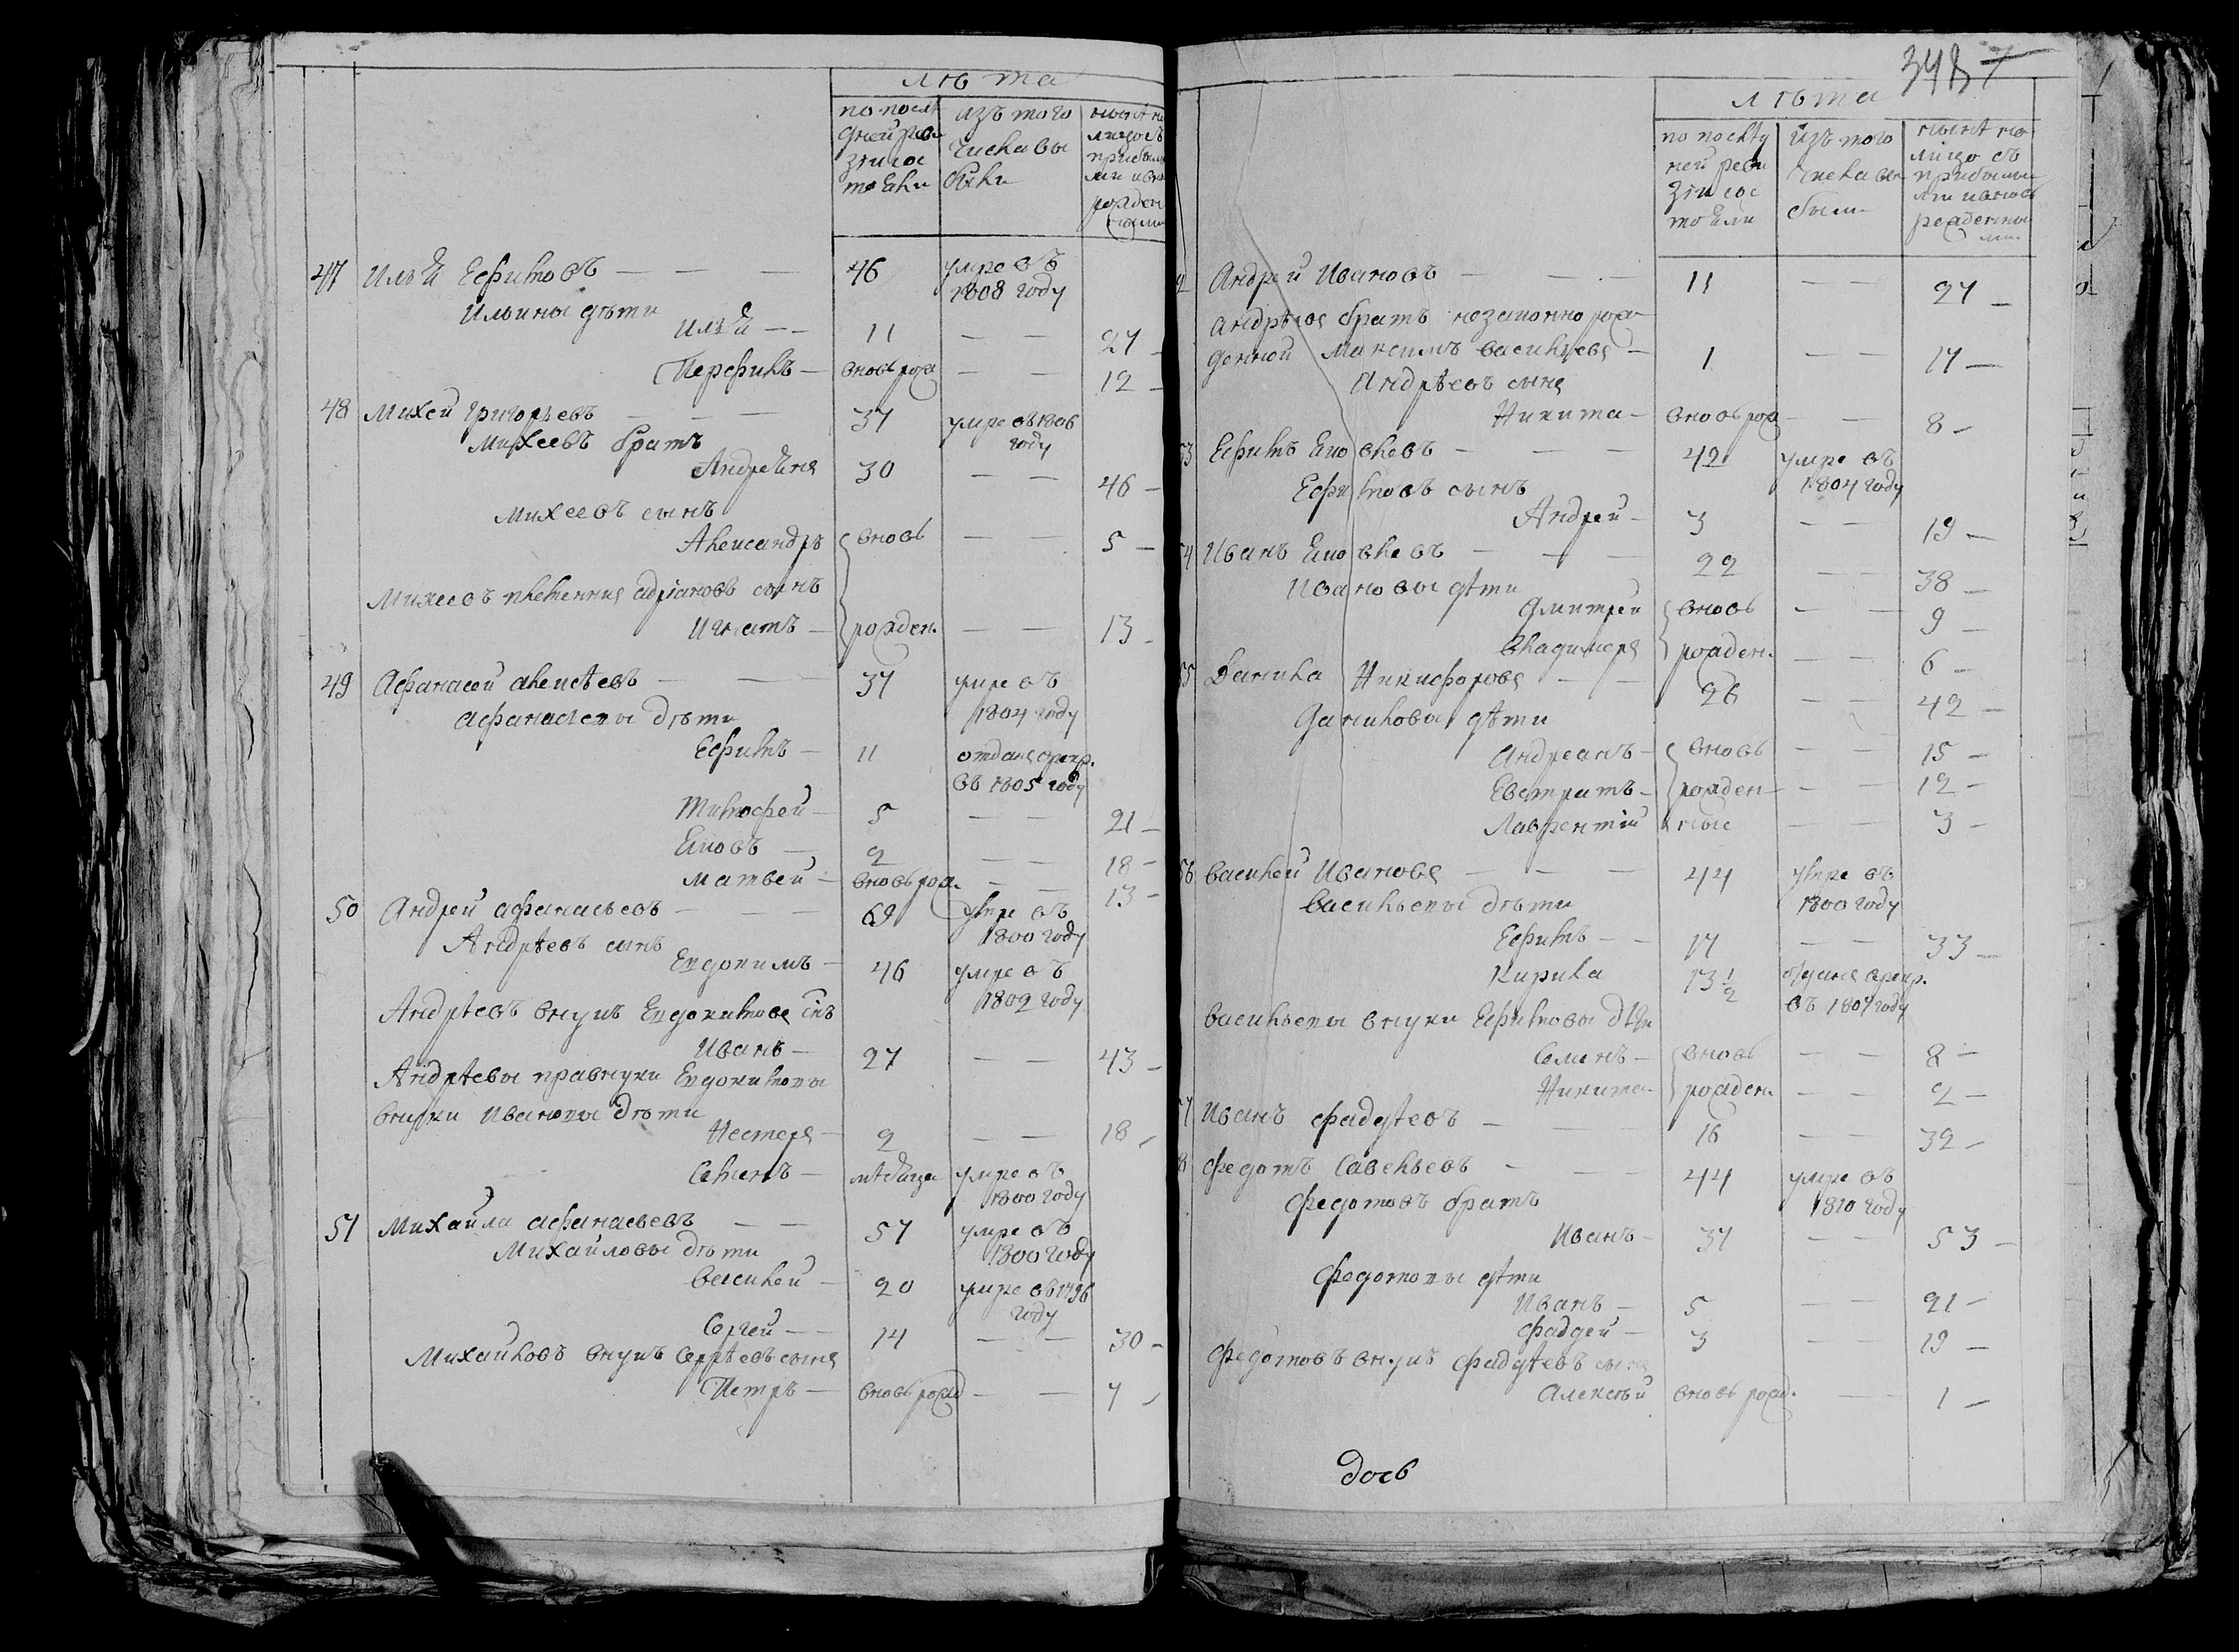 лѣта
по послѣ изъ того нынѣ на
дней ре числа вы лицо съ
зіи сос были прибыл
тояли ми и вно
рожден
ными
47 Илья Ефимовъ — — — 46 умре въ
1808 году
Ильины дѣти
Илья — — 11 — — 27 —
Перфилъ — вновь рож — — 12 —
48 Михей Григорьевъ — — — 37 умре въ 1806
году
Михеевъ братъ
Андреянъ 30 — — 46 —
Михеевъ сынъ
Александръ вновь — — 5 —
Михеевъ племянникъ Адріановъ сынъ
Игнатъ — рожден. — — 13 —
49 Афанасей Алексѣевъ — — 37 умре въ
1804 году
Афанасьевы дѣти
Ефимъ — 11 отданъ врекр.
въ 1805 году
Тимофей — 5 — — 21 —
Яковъ — 2 — — 18 —
Матвей — вновь рож. — — 13 —
50 Андрей Афанасьевъ — — — 69 умре въ
1800 году
Андрѣевъ сынъ
Евдокимъ — 46 умре въ
1802 году
Андрѣевъ внукъ Евдокимовъ снъ
Иванъ — 27 — — 43 —
Андрѣевы правнуки Евдокимовы
внуки Ивановы дѣти
Нестеръ — 2 — — 18 —
Семенъ — мѣсяца умре въ
1800 году
51 Михайла Афанасьевъ — — 57 умре въ
1800 году
Михайловы дѣти
Василей — 20 умре въ 1796
году
Сергей — — 14 — — 30 —
Михайловъ внукъ Сергѣевъ сынъ
Петръ — вновь рожд — — 7 —
348 7
лѣта
по послѣд изъ того нынѣ на
ней реви числа вы лицо съ
зіи сос были прибылы
тояли ми и вновь
рожденны
ми
2 Андрей Ивановъ — — — 11 — — 27 —
Андрѣевъ братъ незаконно рож
денной Максимъ Васильевъ — 1 — — 17 —
Андрѣевъ сынъ
Никита — вновь рож — — 8 —
53 Ефимъ Яковлевъ — — — 42 умре въ
1804 году
Ефимовъ сынъ
Андрей — 3 — — 19 —
54 Иванъ Яковлевъ — — — 22 — — 38 —
Ивановы дѣти
Дмитрей вновь — — 9 —
Владимеръ рожден. — — 6 —
55 Данила Никифоровъ — — 26 — — 42 —
Даниловы дѣти
Андреанъ — вновь — — 15 —
Евстратъ — рожден — — 12 —
Лаврентій ные — — 3 —
56 Василей Ивановъ — — — 44 умре въ
1800 году
Васильевы дѣти
Ефимъ — — 17 — — 33 —
Кирила 13 1/2 отданъ врекр.
въ 1807 году
Васильевы внуки Ефимовы дѣти
Семенъ — вновь — — 8 —
Никита — рожден. — — 2 —
57 Иванъ Фадѣевъ — — — 16 — — 32 —
8 Федотъ Савельевъ — — — 44 умре въ
1810 году
Федотовъ братъ
Иванъ — 37 — — 53 —
Федотовы дѣти
Иванъ — 5 — — 21 —
Фадей — 3 — — 19 —
Федотовъ внукъ Фадѣевъ сынъ
Алексѣй вновь рожд. — — 1 —
дось